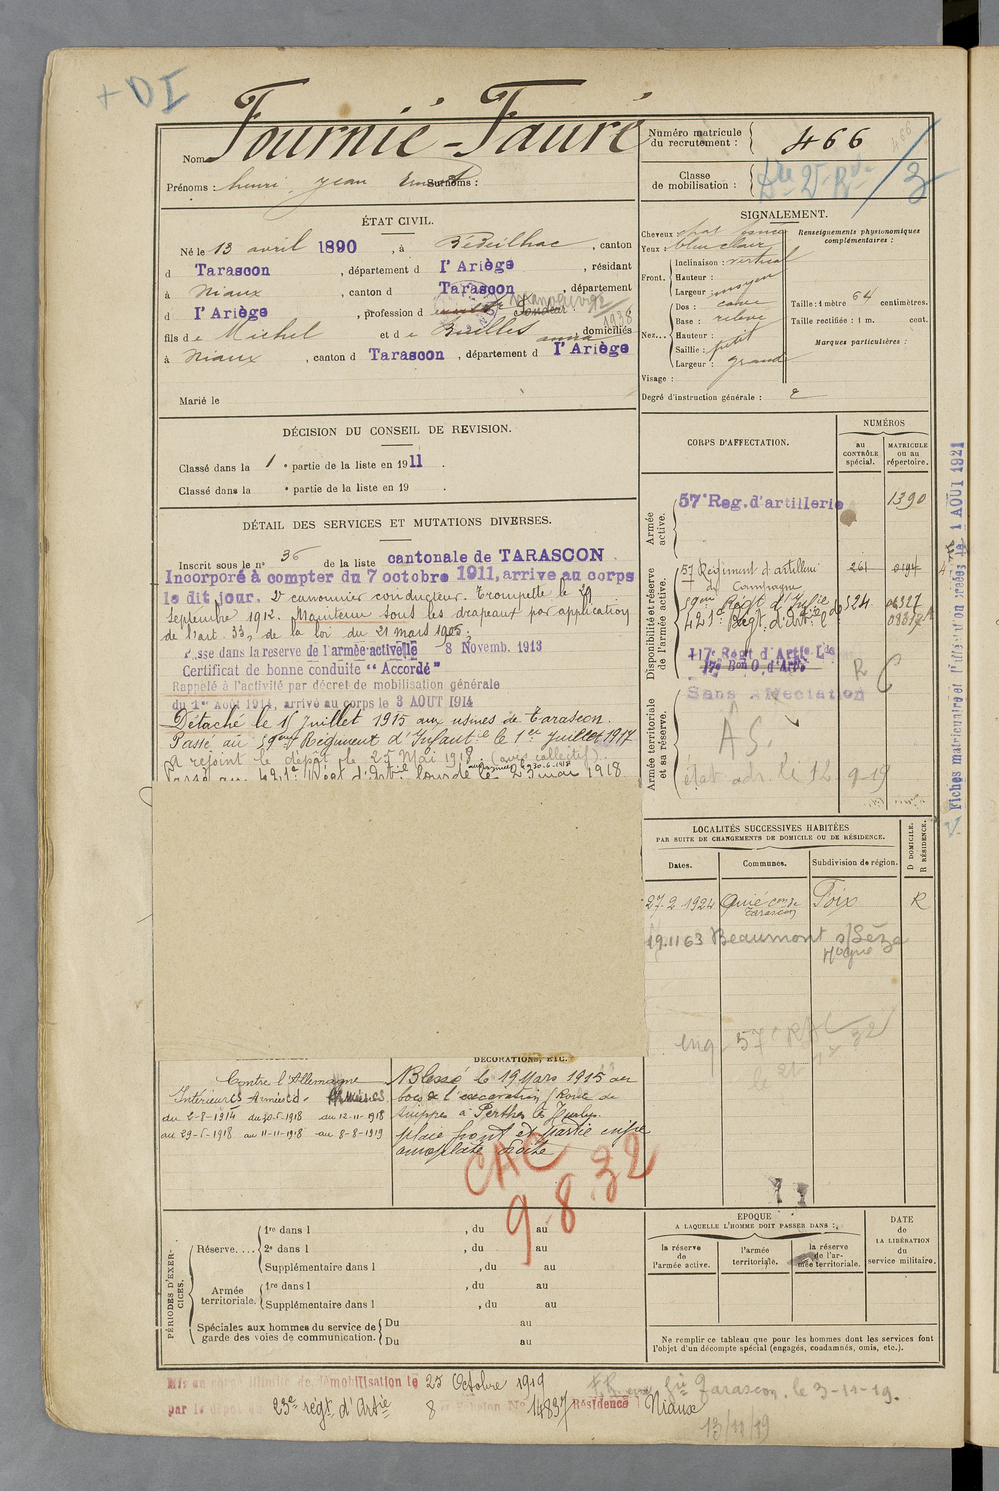 + DI
Nom Fournié-Fauré
Prénoms : henri, Jean Surnoms :
Numéro matricule du recrutement : 466
Classe de mobilisation :
3
ÉTAT CIVIL.
Né le 13 avril 1890, à Bédeilhac, canton
d Tarascon, département d l'Ariège, résidant
à Niaux, canton d Tarascon, département
d l'Ariège, profession d
1938
fils de Michel et de Bailles anna, domiciliés
à Niaux, canton d Tarascon, département d l'Ariège
Marié le
SIGNALEMENT.
Cheveux
Yeux bleu clair
Front. Inclinaison : vertical
Hauteur :
Largeur : moyen
Nez... Dos : cave
Base : relevé
Hauteur :
Saillie : petit
Largeur : grande
Visage :
Degré d'instruction générale : 2
Renseignements physionomiques complémentaires :
Taille : 1 mètre 64 centimètres.
Taille rectifiée : 1 m. cent.
Marques particulières :
DÉCISION DU CONSEIL DE REVISION.
Classé dans la 1 e partie de la liste en 1911.
Classé dans la e partie de la liste en 19 .
DÉTAIL DES SERVICES ET MUTATIONS DIVERSES.
Inscrit sous le n° 36 de la liste cantonale de TARASCON
Incorporé à compter du 7 octobre 1911, arrive au corps
le dit jour. 2e canonnier conducteur. Trompette le 29
septembre 1912. Maintenu sous les drapeaux par application
de l'art. 33, de la loi du 21 mars 1905,
Passe dans la reserve de l'armée active le 8 Novemb. 1913
Certificat de bonne conduite "Accordé"
Rappelé à l'activité par décret de mobilisation générale
du 1er Août 1914, arrivé au corps le 3 AOUT 1914
Détaché le 15 juillet 1915 aux usines de Tarascon.
Passé au 59eme Régiment d'Infantie le 1er juillet 1917
A rejoint le dépôt le 25 Mai 1918 (avis collectif)
Passé au 421e Régt d'Artie lourde le 23 mai 1918
CORPS D'AFFECTATION.
NUMÉROS
au CONTRÔLE spécial.
MATRICULE ou au répertoire.
Armée active.
57e Reg. d'artillerie 1390
Disponibilité et réserve de l'armée active.
57 Régiment d'artillerie 261 0194
de Campagne
59eme Régt d'Infie 524
421e Régt d'Artie
117e Regt d'Artie Lde
17e Bon O. d'Artie
Armée territoriale et sa réserve.
Sans affectation
R C
A S.
état adr. le 12-9-19
V. Fiches matriculaire et d'affectation créées le 1 AOUT 1921
LOCALITÉS SUCCESSIVES HABITÉES
PAR SUITE DE CHANGEMENTS DE DOMICILE OU DE RÉSIDENCE.
Dates. Communes. Subdivision de région. D DOMICILE. R RÉSIDENCE.
27-2 1924 Quié con de Tarascon Foix R
19.11 63 Beaumont s/Lèze
Hte Gne
57e RAC
DÉCORATIONS, ETC.
Contre l'Allemagne
Intérieur CS Armées CD.
du 2-8-1914 du 30-5-1918 du 12-11-1918
au 29-5-1918 au 11-11-1918 au 8-8-1919
Blessé le 19 Mars 1915 au
bois de l'exécration (Route de
Suippes à Perthes les Hurlus.
plaie front et partie infre
omoplate droite
CAC
9.8.32
PÉRIODES D'EXERCICES.
Réserve.... 1re dans l , du au
2e dans l , du au
Supplémentaire dans l , du au
Armée territoriale. 1re dans l , du au
Supplémentaire dans l , du au
Spéciales aux hommes du service de garde des voies de communication. Du au
Du au
EPOQUE
A LAQUELLE L'HOMME DOIT PASSER DANS :
la réserve de l'armée active.
l'armée territoriale.
la réserve de l'armée territoriale.
DATE de LA LIBÉRATION du service militaire.
Ne remplir ce tableau que pour les hommes dont les services font
l'objet d'un décompte spécial (engagés, condamnés, omis, etc.).
Mis en congé illimité de démobilisation le 25 Octobre 1919
par le dépôt du 23e régt d'Artie 8 e Echelon N° 14837 Résidence Niaux
Tarascon. le 3-11-19.
13/11/19